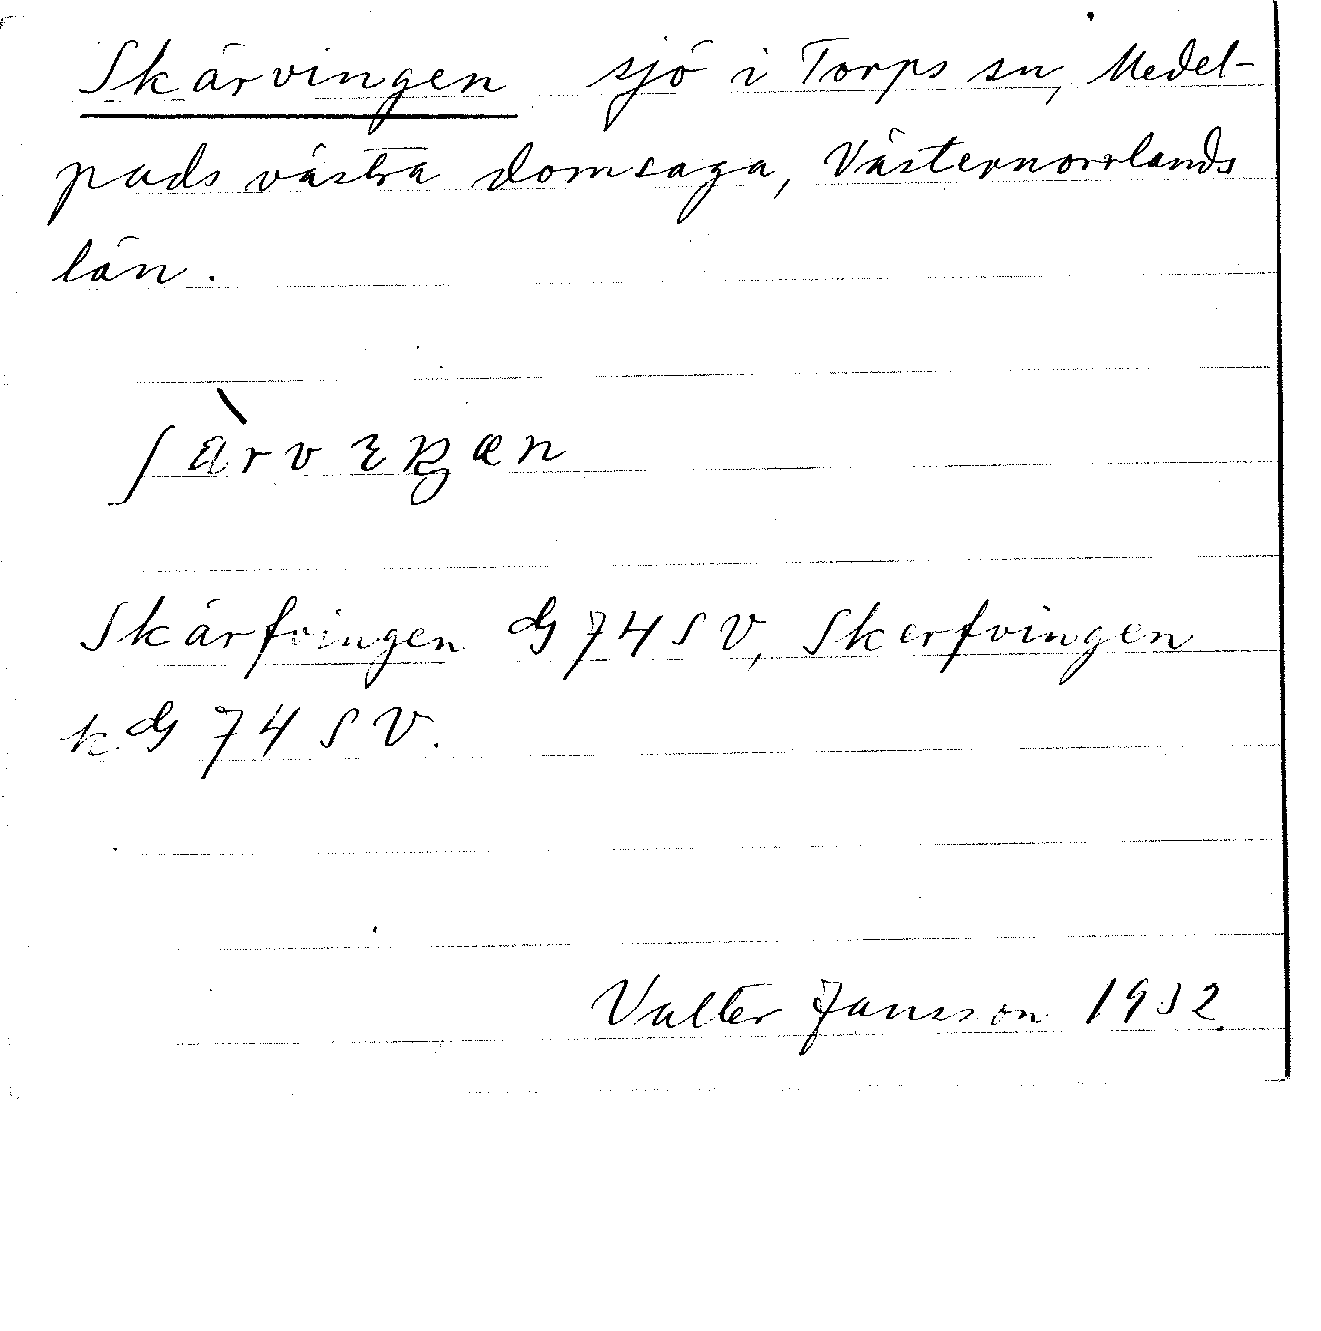 Skärvingen sjö i Torps sn, Medel-
pads västra domsaga, Västernorrlands
län.
Skärfvingen G 74 SV, Skerfvingen
k G 74 SV.
Valter Jansson 1932